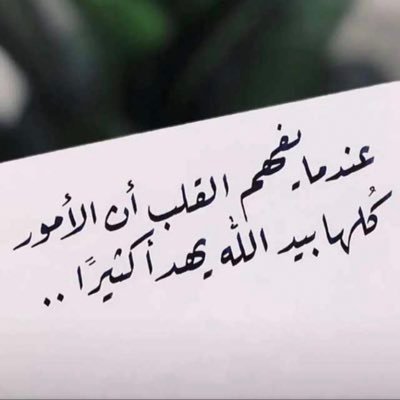 عندما يفهم القلب أن الأمور
كُلها بيد الله يهدأ كثيرًا ..